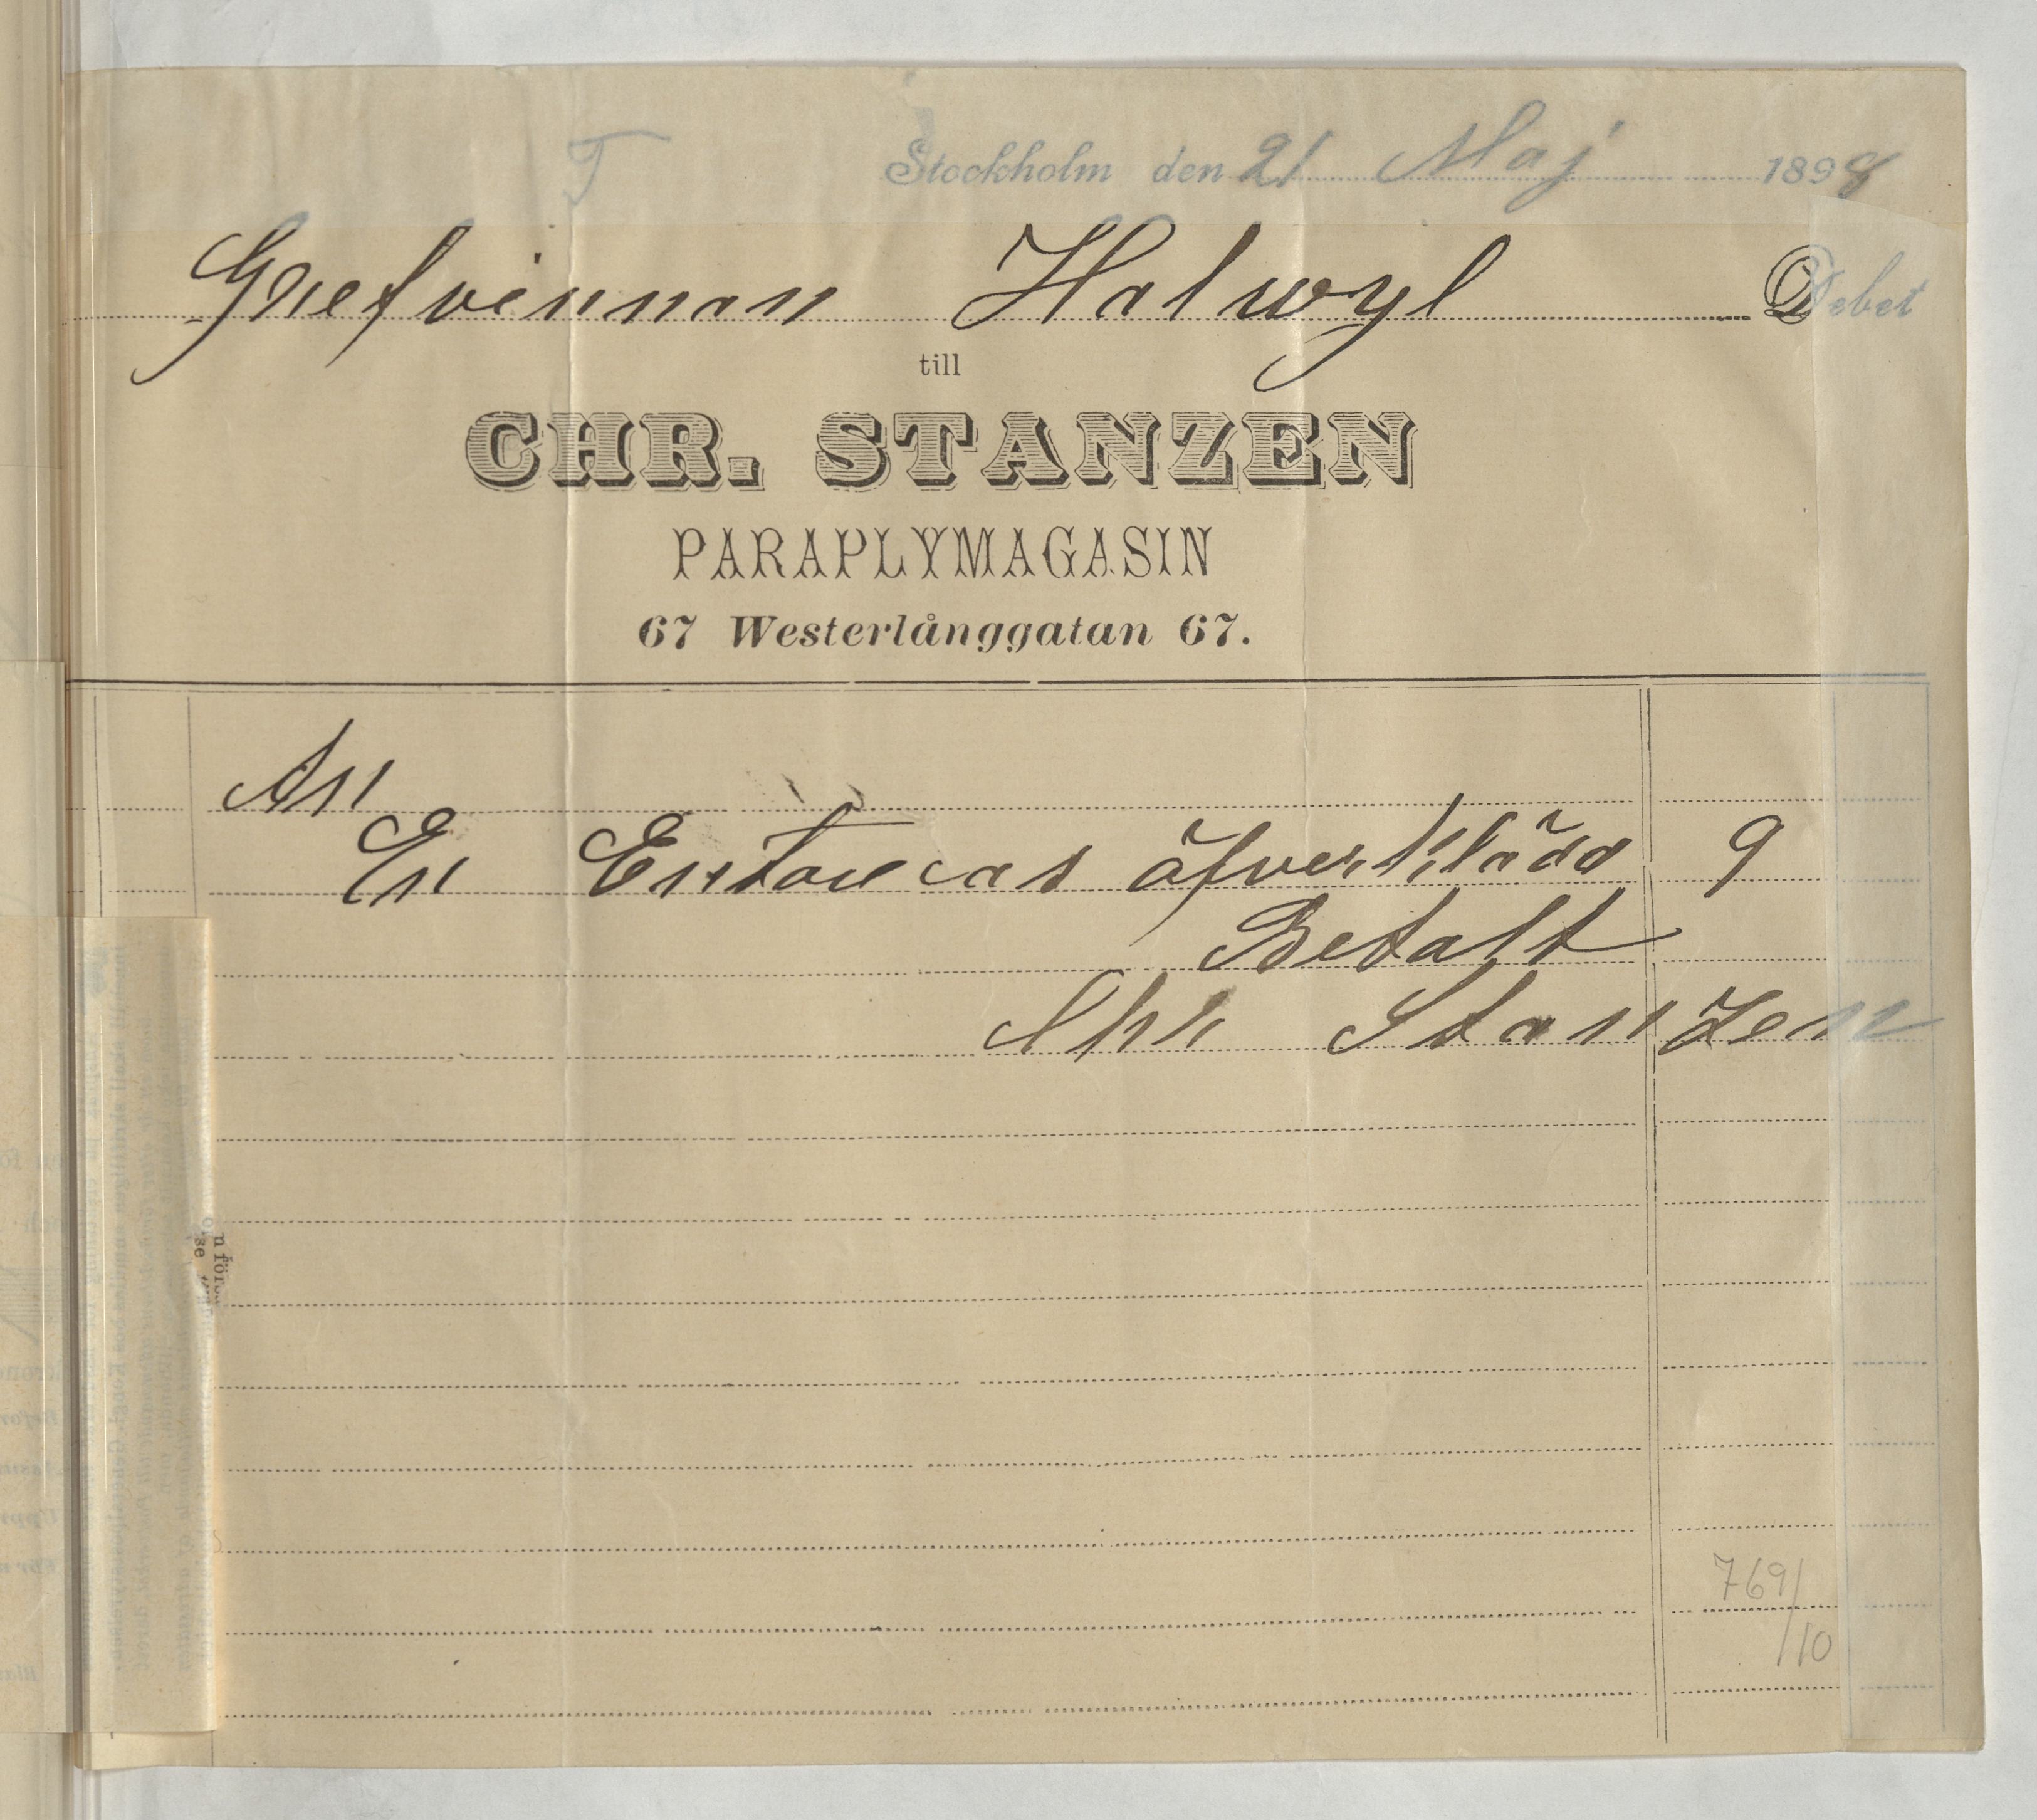 T
Stockholm den 21 Maj 1898
Grefvinnan Halwyl Debet
till
CHR. STANZEN
PARAPLYMAGASIN
67 Westerlånggatan 67.
An
En Entoucas öfverklädd 9
Betalt
Chr Stanzen
769/10